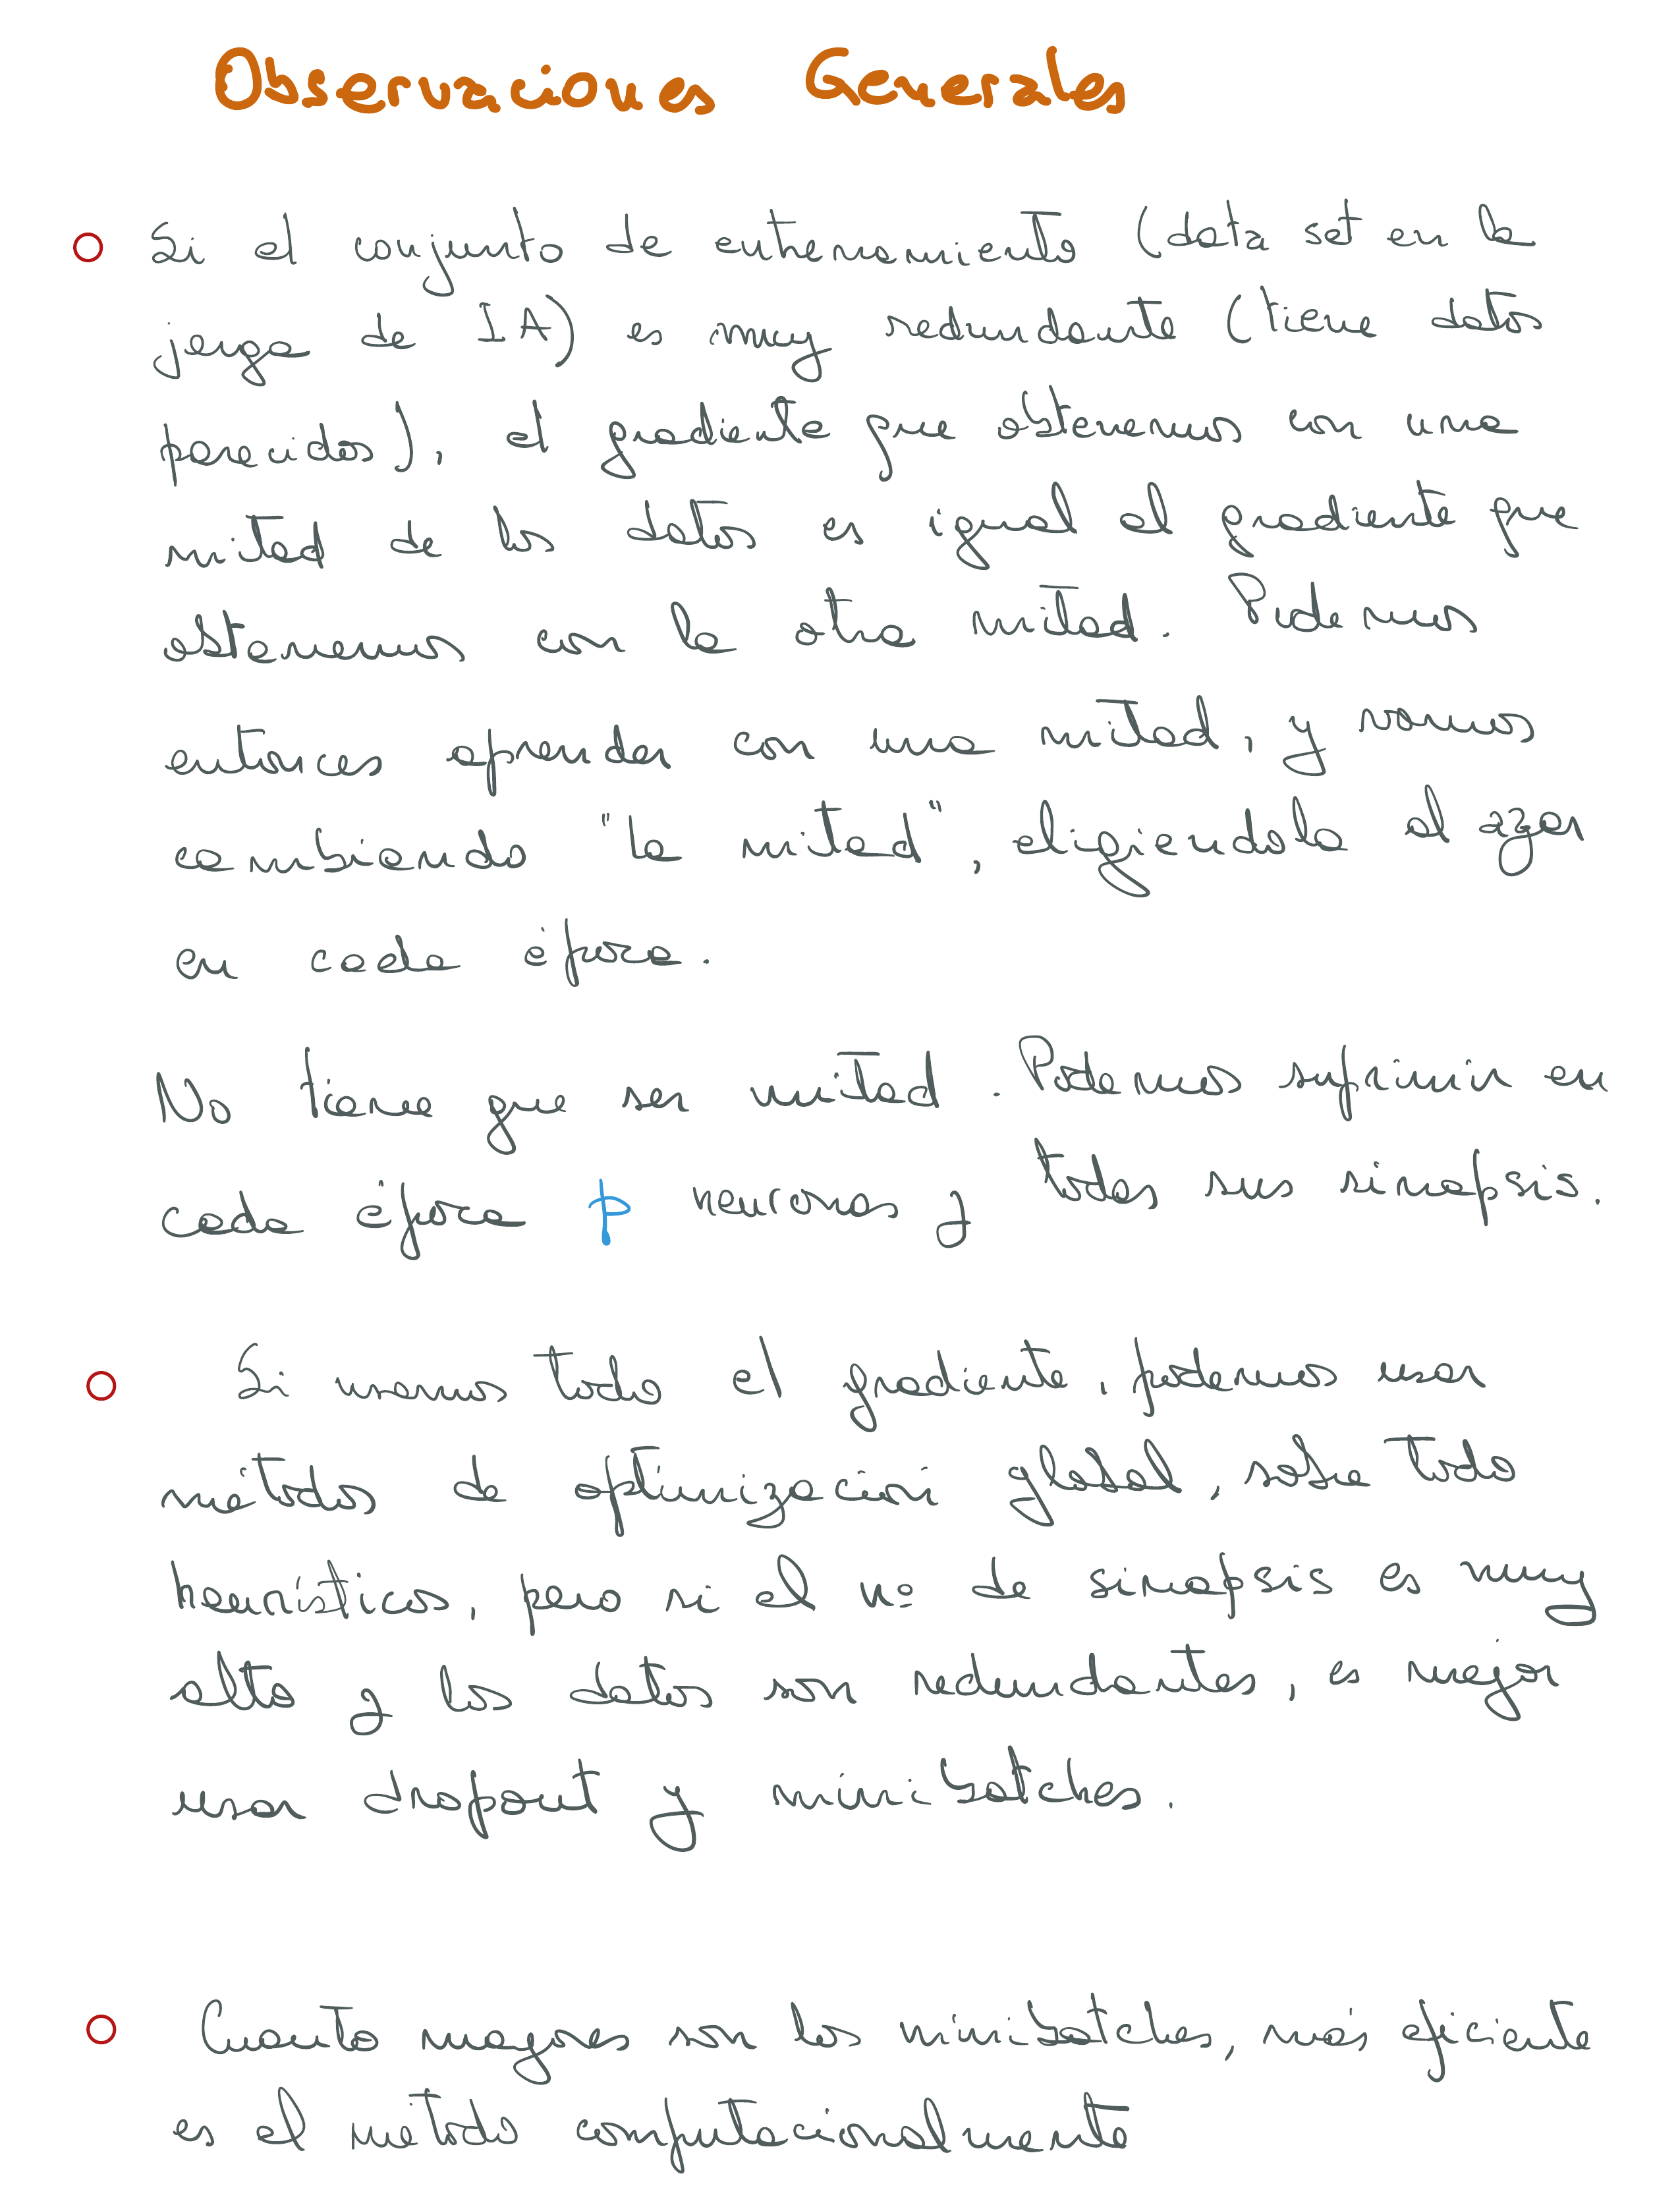 Observaciones Generales
Si el conjunto de entrenamiento (data set en la
jerga de IA) es muy redundante (tiene datos
parecidos), el gradiente que obtenemos con una
mitad de los datos es igual al gradiente que
obtenemos con la otra mitad. Podemos
entonces aprender con una mitad, y vamos
cambiando "la mitad", eligiendola al azar
en cada época.
No tiene que ser mitad. Podemos suprimir en
cada época p neuronas y todas sus sinapsis.
Si usamos todo el gradiente, podemos usar
métodos de optimización global, sobre todo
heurísticos, pero si el nº de sinapsis es muy
alto y los datos son redundantes, es mejor
usar dropout y minibatches.
Cuanto mayores son los minibatches, más eficiente
es el método computacionalmente